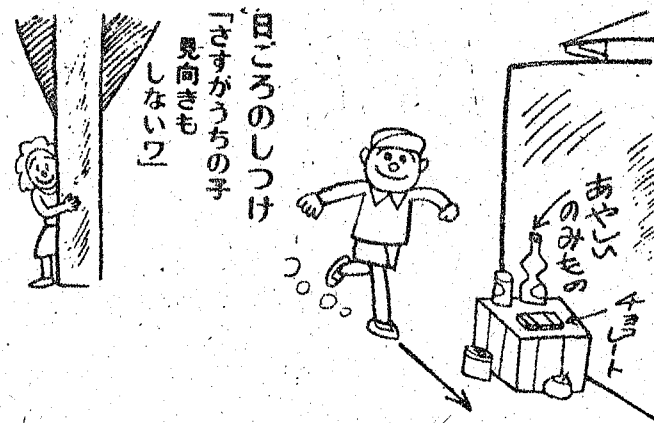 日ごろのしつけ
「さすがうちの子
見向きも
しないワ」
あやしい
のみもの
チョコレート